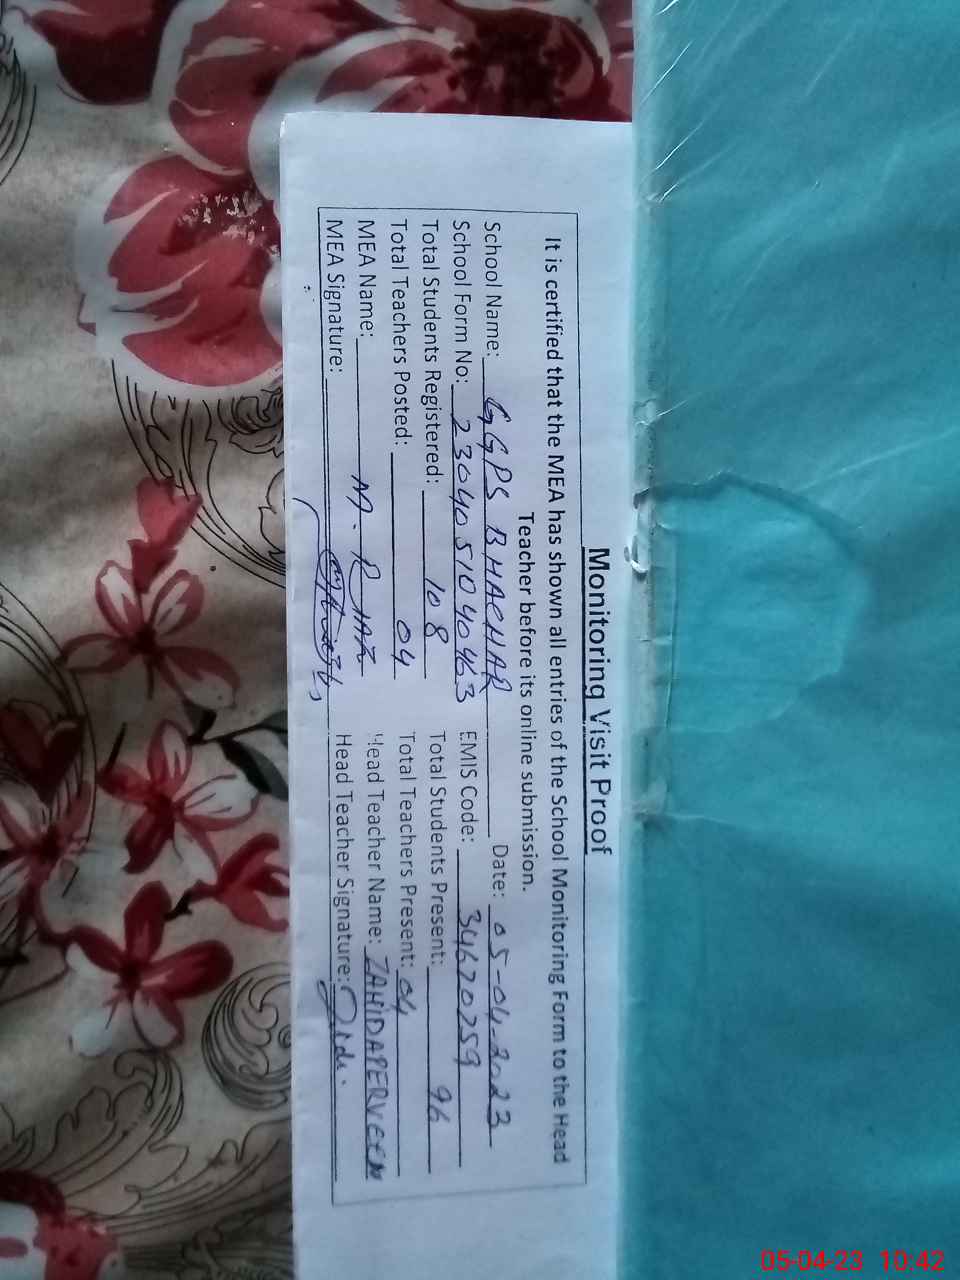 Monitoring Visit Proof
It is certified that the MEA has shown all entries of the School Monitoring Form to the Head
Teacher before its online submission.
School Name: GGPS BHACHAR Date: 05-04-2023
School Form No: 2304051040463 EMIS Code: 34620259
Total Students Registered: 108 Total Students Present: 96
Total Teachers Posted: 04 Total Teachers Present: 04
MEA Name: M. Head Teacher Name: ZAHIDA PERVEEN
MEA Signature: Head Teacher Signature:
05-04-23 10:42